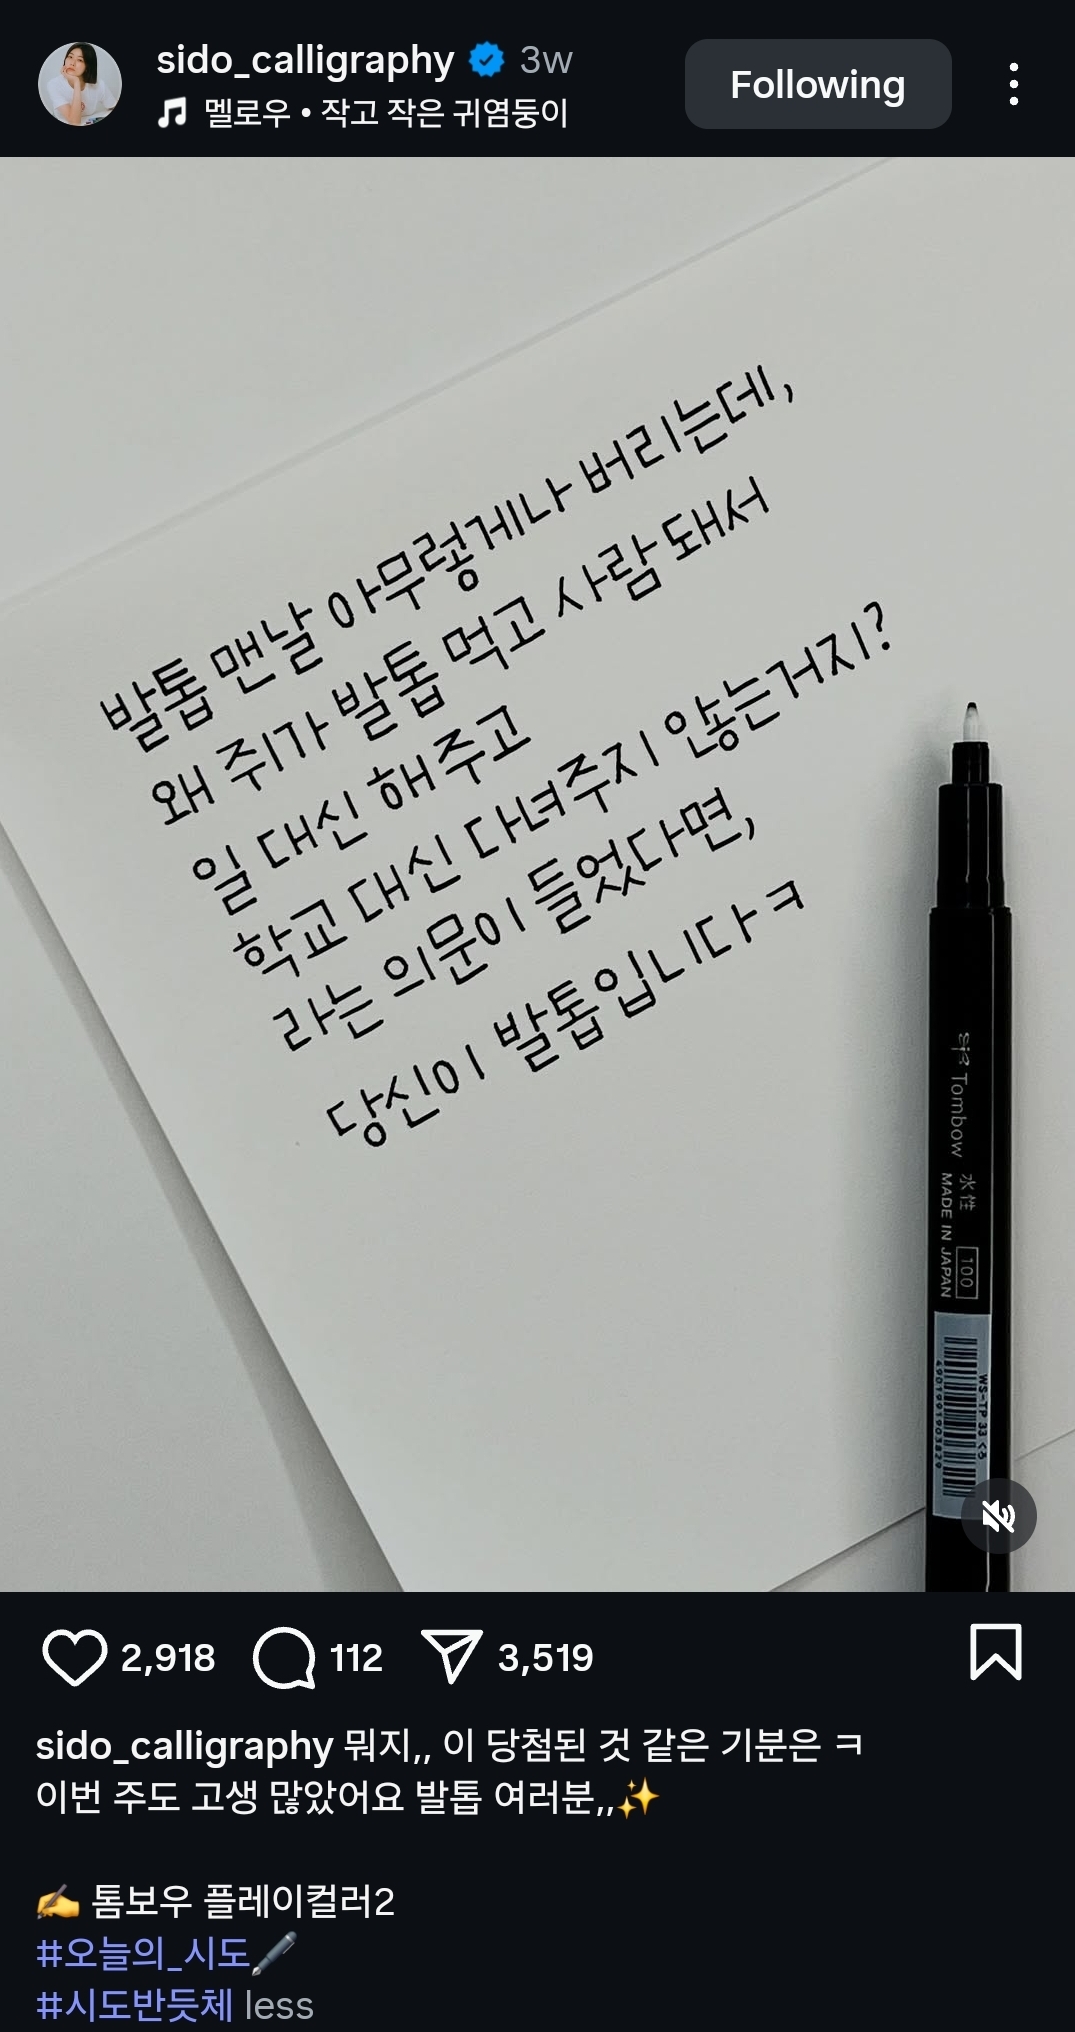 sido_calligraphy 3w
멜로우 • 작고 작은 귀염둥이
Following
발톱 맨날 아무렇게나 버리는데,
왜 쥐가 발톱 먹고 사람 돼서
일 대신 해주고
학교 대신 다녀주지 않는거지?
라는 의문이 들었다면,
당신이 발톱입니다ㅋ
Tombow 水性 100
MADE IN JAPAN
WS-TP 33
4901991903829
2,918 112 3,519
sido_calligraphy 뭐지,, 이 당첨된 것 같은 기분은 ㅋ
이번 주도 고생 많았어요 발톱 여러분,,✨
✍️ 톰보우 플레이컬러2
#오늘의_시도🖊️
#시도반듯체 less